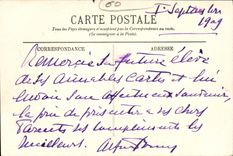 60
1 Septembre
1909
CARTE POSTALE
Tous les Pays étrangers n'acceptent pas la Correspondance au recto.
(Se renseigner à la Poste)
CORRESPONDANCE ADRESSE
Remercie sa future élève
de ses aimables cartes et lui
envoie son affectueux souvenir,
la prie de présenter à ses chers
Parents ses compliments les
meilleurs.